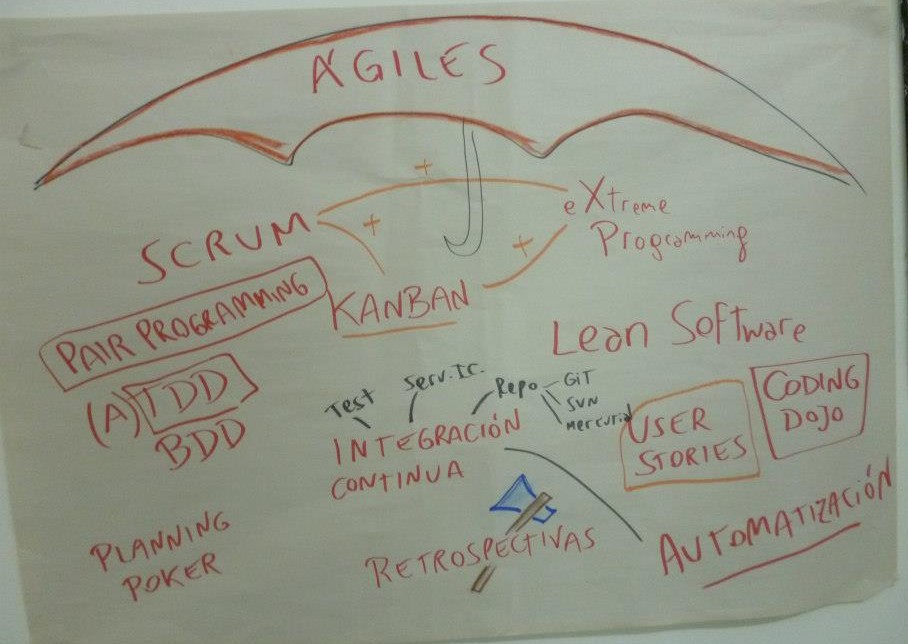 ÁGILES
+
SCRUM
+
+
eXtreme
Programming
PAIR PROGRAMMING
KANBAN
Lean Software
(A) TDD
BDD
Test
Serv. Ic.
Repo
GIT
SVN
Mercurial
INTEGRACIÓN
CONTINUA
USER
STORIES
CODING
DOJO
PLANNING
POKER
RETROSPECTIVAS
AUTOMATIZACIÓN